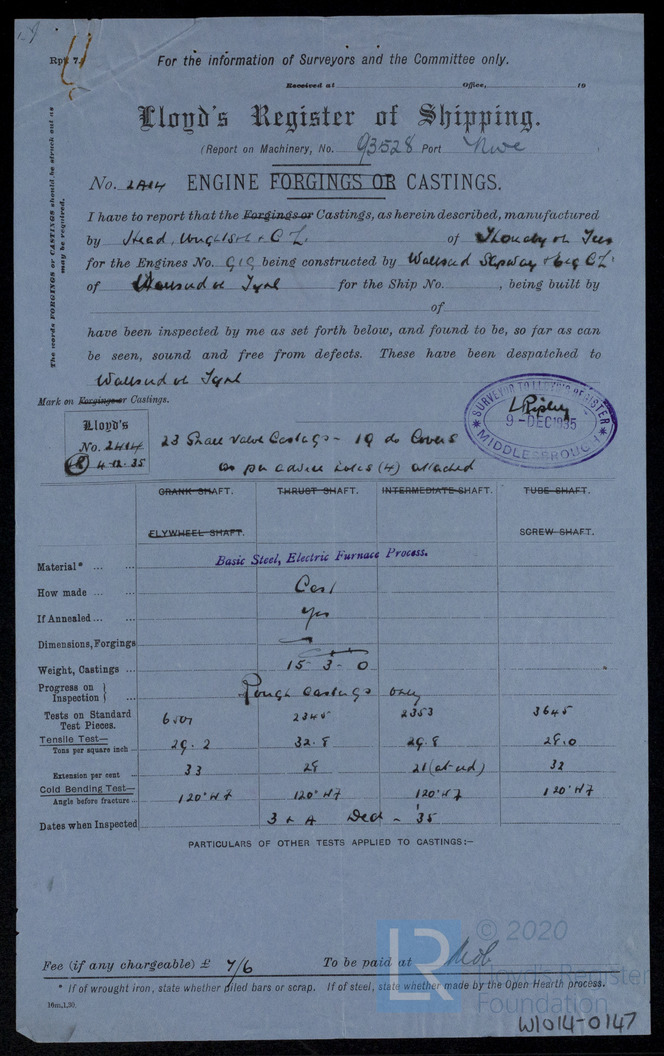 Rpt 7.
For the information of Surveyors and the Committee only.
Received at Office, 19
Lloyd's Register of Shipping.
(Report on Machinery, No. 93528 Port Nwc
No. ENGINE FORGINGS OR CASTINGS.
I have to report that the Forgings or Castings, as herein described, manufactured
by Head, Wrightson & Co L. of Thornaby on Tees
for the Engines No. 919 being constructed by Wallsend Slipway & Eng Co L.
of Wallsend on Tyne for the Ship No. , being built by
of
have been inspected by me as set forth below, and found to be, so far as can
be seen, sound and free from defects. These have been despatched to
Wallsend on Tyne
The words FORGINGS or CASTINGS should be struck out as
may be required.
Mark on Forgings or Castings.
Lloyd's
No.
4.12.35
23 Valve Castings - 19 do Covers
as per advice notes (4) attached
SURVEYOR TO LLOYD'S REGISTER
L Ripley
9-DEC 1935
MIDDLESBROUGH
CRANK SHAFT. THRUST SHAFT. INTERMEDIATE SHAFT. TUBE SHAFT.
FLYWHEEL SHAFT. SCREW SHAFT.
Material* ... ... Basic Steel, Electric Furnace Process.
How made ... ... Cast
If Annealed ... ... Yes
Dimensions, Forgings
Weight, Castings ... 15 - 3 - 0
Progress on Inspection } ... Rough castings only
Tests on Standard Test Pieces. 2345 2353 3645
Tensile Test— Tons per square inch 29.2 32.8 29.8 28.0
Extension per cent ... 33 28 32
Cold Bending Test— Angle before fracture... 120° 120° 120° 120°
Dates when Inspected 3 & 4 Dec - '35
PARTICULARS OF OTHER TESTS APPLIED TO CASTINGS:—
Fee (if any chargeable) £ 7/6 To be paid at Mdb
* If of wrought iron, state whether piled bars or scrap. If of steel, state whether made by the Open Hearth process.
16m.1,30.
LR © 2020
Lloyd's Register
Foundation
W1014-0147